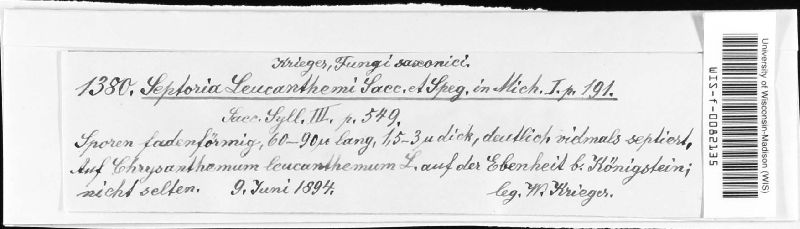 Krieger, Fungi saxonici.
1380. Septoria Leucanthemi Sacc. et Speg. in Mich. I. p. 191.
Sacc. Syll. III. p. 549.
Sporen fadenförmig, 60–90µ lang, 1,5–3µ dick, deutlich vidmals septiert,
Auf Chrysanthemum leucanthemum L. auf der Ebenheit b. Königstein;
nicht selten. 9. Juni 1894. leg. W. Krieger.
University of Wisconsin-Madison (WIS)
WIS-f-0082135